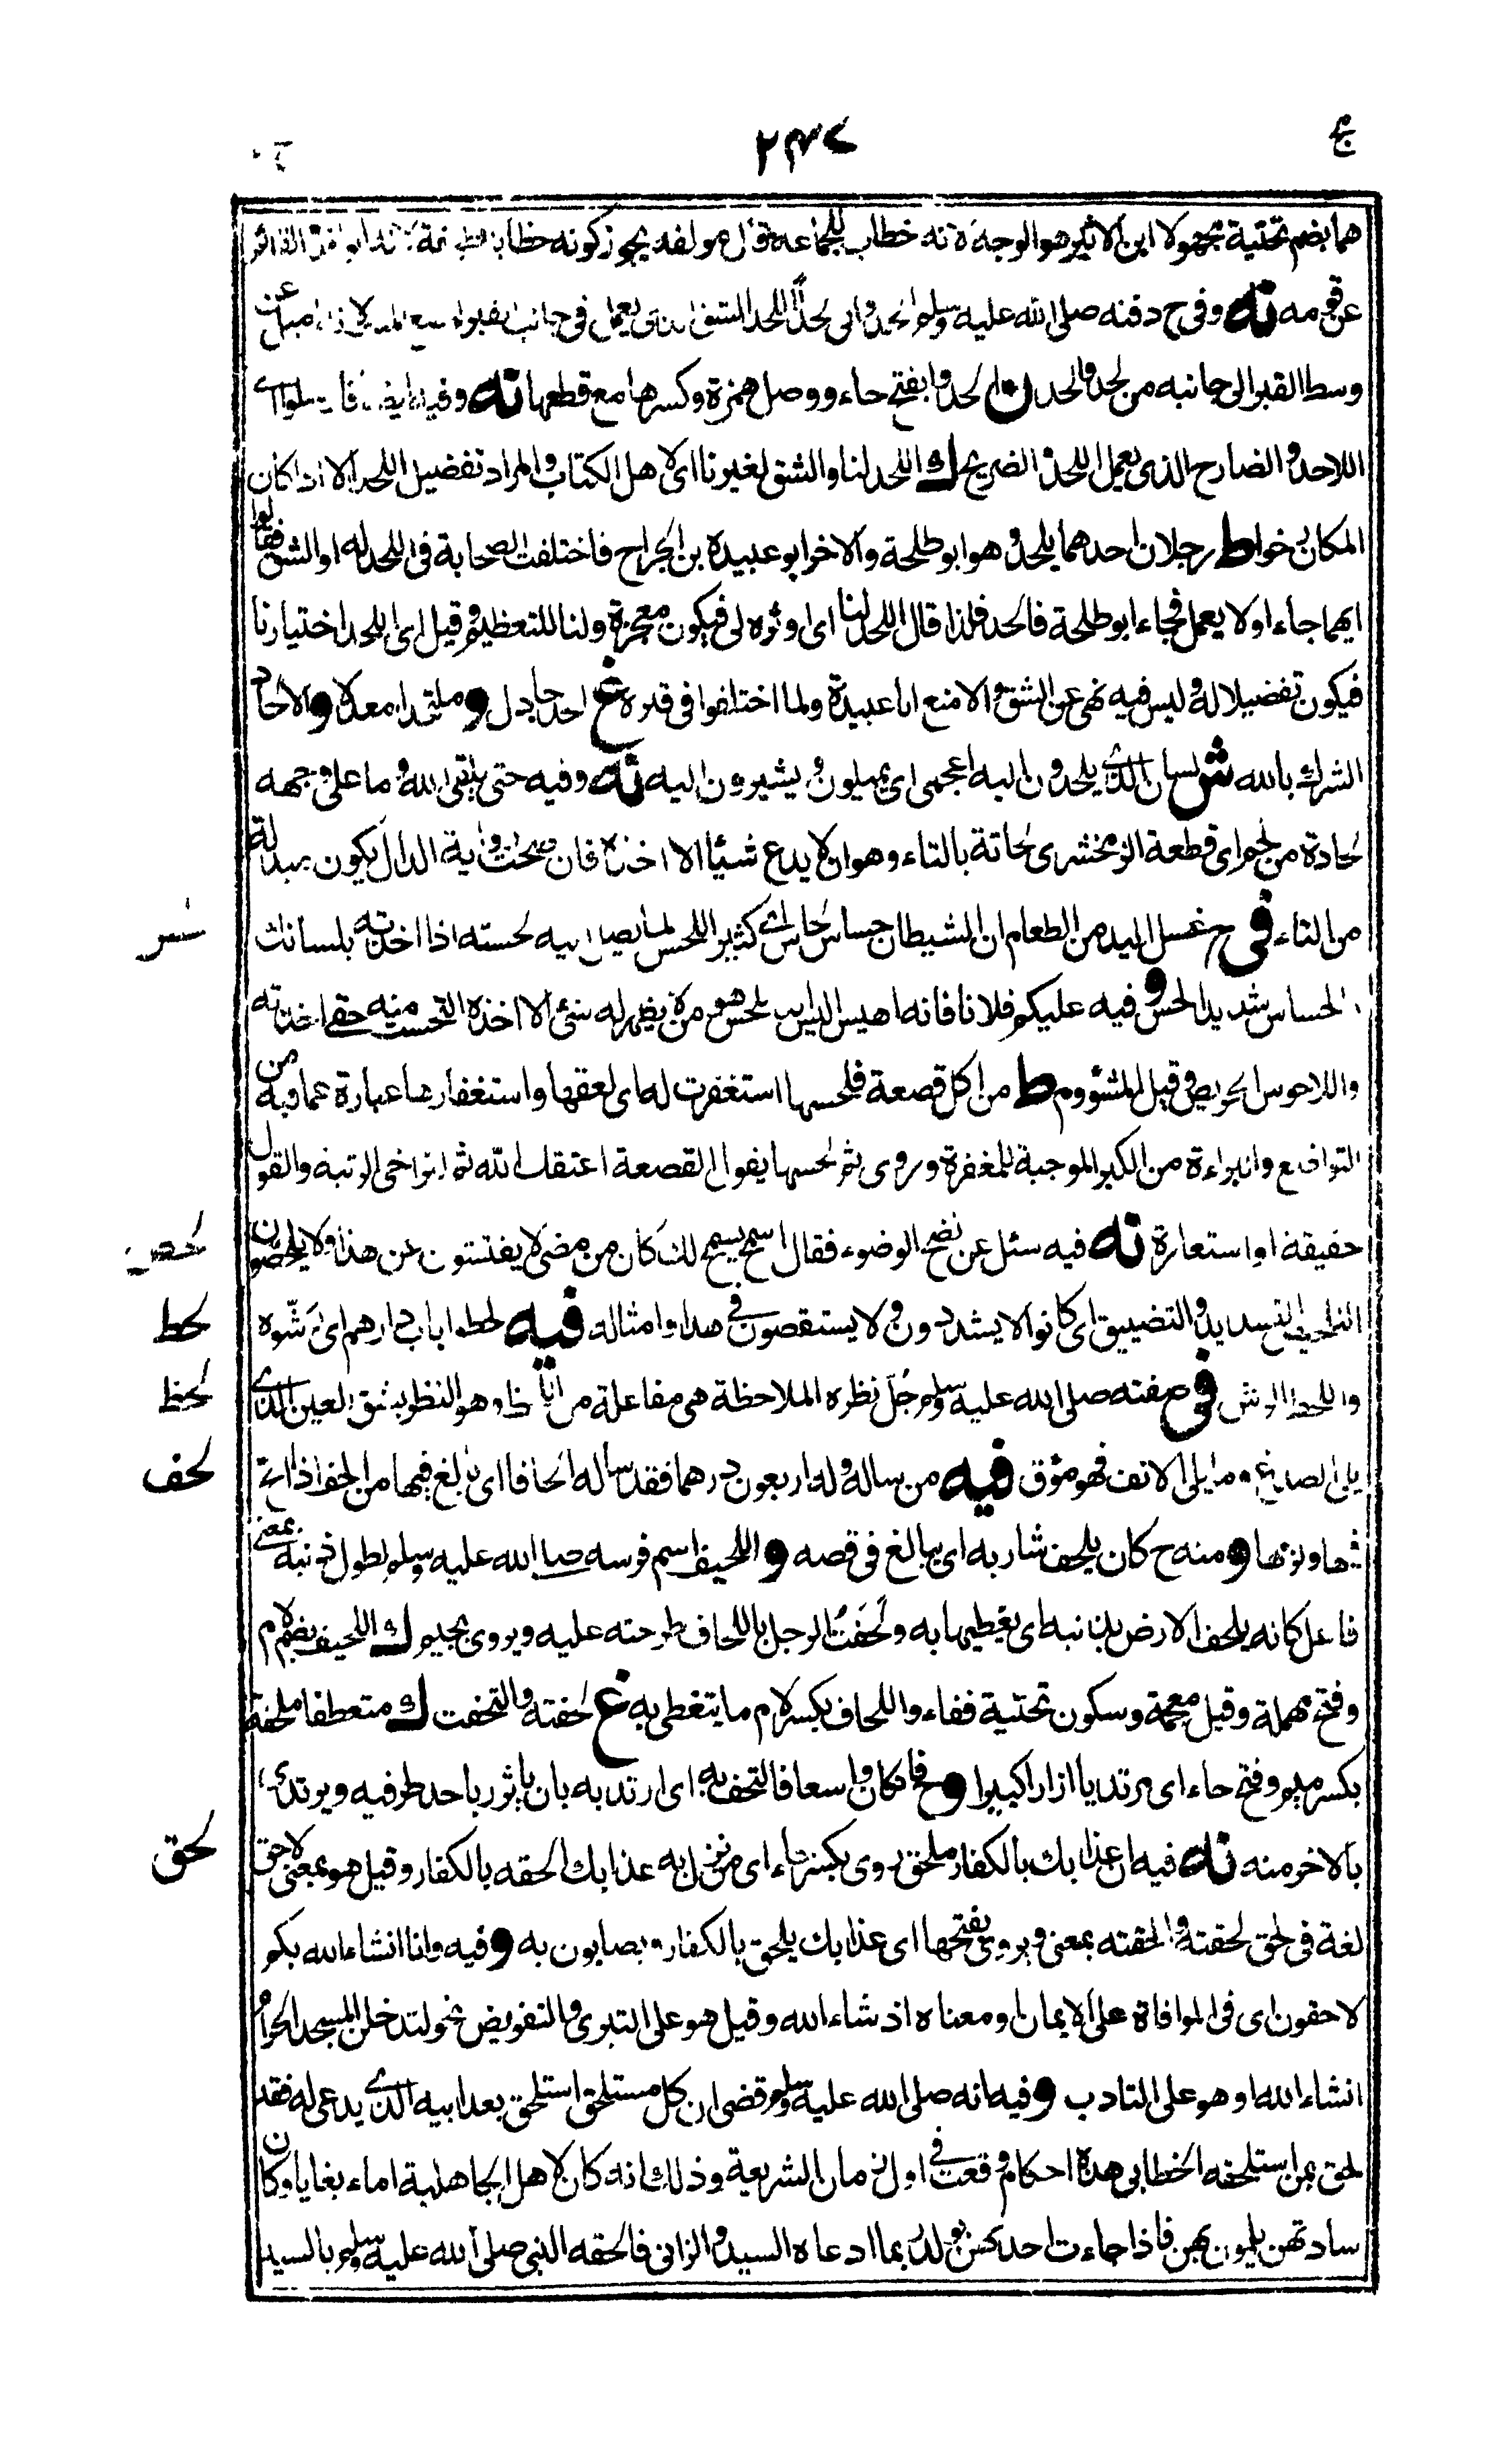 ٢٤٧
هما بضم تحتية مجهولا ابن الاثير هو الوجه لانه خطاب للجماعة قال مولفه يجوز كونه خطابا
عن قومه نه وفي ح دفنه صلى الله عليه وسلم الحدوا لي لحدا اللحد الشق الذي يعمل في جانب القبر لانه اميل عن
وسط القبر الى جانبه من لحد والحد ن الحدوا بفتح حاء ووصل همزة وكسرها مع قطعها نه وفيه ايضا فارسلوا الى
اللاحد والضارح الذي يعمل اللحد والضريح ك اللحد لنا والشق لغيرنا اى لاهل الكتاب والمراد تفضيل اللحد الا اذا كان
المكان رخوا ط رجلان احدهما يلحد وهو ابو طلحة والاخر ابو عبيدة بن الجراح فاختلفت الصحابة في اللحد له او الشق فقالوا
ايهما جاء اولا يعمل فجاء ابو طلحة فالحد فلذا قال اللحد لنا اى اوثره لي فيكون معجزة ولنا للتعظيم وقيل اى اللحد اختيارنا
فيكون تفضيلا له وليس فيه نهي عن الشق والا لمنع ابا عبيدة ولما اختلفوا في قدره غ الحد جادل و ملتحدا معدلا و الالحاد
الشرك بالله ش لسان الذي يلحدون اليه اعجمي اى يميلون ويشيرون اليه نه وفيه حتى يلقى الله وما على وجهه
لحادة من لحم اى قطعة الزمخشري لحاتة بالتاء وهو ان لا يدع شيئا الا اخذه فان صحت رواية الدال يكون مبدلة
من التاء في ح غسل اليد من الطعام ان الشيطان حساس لحاس اى كثير اللحس لما يصل اليه لحسته اذا اخذته بلسانك
والحساس شديد الحس و فيه عليكم فلانا فانه اهيس اليس الد ملحس هو من لا يظهر له شئ الا اخذه التحست منه حقي اخذته
واللاحوس الحريص وقيل المشؤوم ط من اكل قصعة فلحسها استغفرت له اى لعقها واستغفارها عبارة عما فيه من
التواضع والبراءة من الكبر الموجبة للمغفرة وروى ثم لحسها يقول القصعة اعتقك الله ثم لتراخي الرتبة والقول
حقيقة او استعارة نه فيه سئل عن نضح الوضوء فقال اسمح يسمح لك كان من مضى لا يفتشون عن هذا ولا يلحصون
التلحيص التشديد والتضييق اى كانوا لا يشددون ولا يستقصون في هذا وامثاله فيه لحطوا باب دارهم اى رشوه
واللحط الرش في صفته صلى الله عليه وسلم جل نظره الملاحظة هي مفاعلة من اللحظ وهو النظر بشق العين الذي
يلي الصدغ وما يلي الانف فهو موق فيه من سأله وله اربعون درهما فقد سأله الحافا اى بالغ فيها من الحف اذا الح
فيها ولزمها و منه ح كان يلحف شاربه اى يبالغ في قصه و اللحيف اسم فرسه صلى الله عليه وسلم لطول ذنبه بمعنى
فاعل كانه يلحف الارض بذنبه اى يغطيها به ولحفت الرجل باللحاف طرحته عليه ويروى بجيم ك اللحيف بضم لام
وفتح مهملة وقيل معجمة وسكون تحتية ففاء واللحاف بكسر لام ما يتغطى به غ لحفته والتحفت ك متعطفا ملحفة
بكسر ميم وفتح حاء اى مرتديا ازارا كبيرا و ح فان كان واسعا فالتحف به اى ارتد به بان ياتزر باحد طرفيه ويرتدي
بالاخر منه نه فيه ان عذابك بالكفار ملحق روى بكسر حاء اى من نزل به عذابك الحقه بالكفار وقيل هو بمعنى لاحق
لغة في لحق لحقته والحقته بمعنى ويروى بفتحها اى عذابك يلحق بالكفار ويصابون به و فيه وانا انشاء الله بكم
لاحقون اى في الموافاة على الايمان ومعناه اذ شاء الله وقيل هو على التبري والتفويض نحو لتدخلن المسجد الحرام
انشاء الله او هو على التادب و فيه انه صلى الله عليه وسلم قضى ان كل مستلحق استلحق بعد ابيه الذي يدعى له فقد
لحق بمن استلحقه الخطابي هذه احكام وقعت في اول زمان الشريعة وذلك انه كان لاهل الجاهلية اماء بغايا وكان
سادتهن يلمون بهن فاذا جاءت احدىهن بولد ربما ادعاه السيد والزاني فالحقه النبي صلى الله عليه وسلم بالسيد
لحص
لحط
لحظ
لحف
لحق